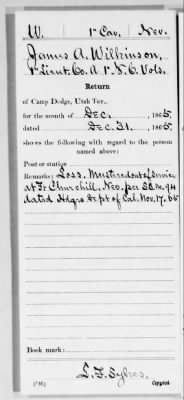 W. 1st Cav. Nev.
James A. Wilkinson,
1st Lieut. Co. A 1st N. C. Vols.
Return
of Camp Dodge, Utah Ter.,
for the month of Dec., 1865
dated Dec. 31, 1865,
shows the following with regard to the person
named above:
Post or station
Remarks: Loss. Mustered out of service
at Ft Churchill, Nev. per S.O. No. 94
dated Hdqrs Dept of Cal. Nov. 17, 65
Book mark:
L. F. Sykes,
(546) Copyist.